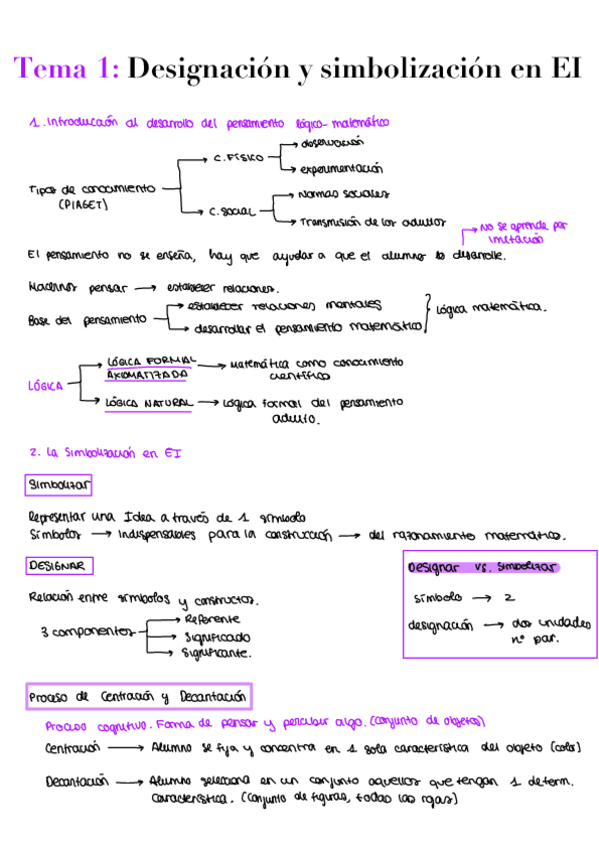 Tema 1: Designación y simbolización en EI
1. Introducción al desarrollo del pensamiento lógico-matemático
Tipos de conocimiento (PIAGET)
C. FÍSICO
observación
experimentación
C. SOCIAL
Normas sociales
Transmisión de los adultos
No se aprende por
imitación
El pensamiento no se enseña, hay que ayudar a que el alumno lo desarrolle.
Hacernos pensar → establecer relaciones.
Base del pensamiento
establecer relaciones mentales
desarrollar el pensamiento matemático
lógica matemática.
LÓGICA
LÓGICA FORMAL
AXIOMATIZADA
→ matemática como conocimiento
científico
LÓGICA NATURAL → lógica formal del pensamiento
adulto.
2. La Simbolización en EI
Simbolizar
Representar una Idea a través de 1 símbolo
Símbolos → Indispensables para la construcción → del razonamiento matemático.
DESIGNAR
Relación entre símbolos y constructos.
3 componentes
Referente
Significado
Significante.
Designar vs. Simbolizar
símbolo → 2
designación → dos unidades
nº par.
Proceso de Centración y Decantación
Proceso cognitivo. Forma de pensar y percibir algo. (conjunto de objetos)
Centración → Alumno se fija y concentra en 1 sola característica del objeto (color)
Decantación → Alumno selecciona en un conjunto aquellos que tengan 1 determ.
característica. (conjunto de figuras, todas las rojas)